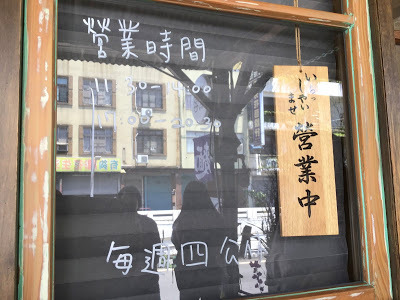 營業時間
11:30-14:00
17:00-20:30
每週四公休
いらっ
しゃい
ませ
營業中